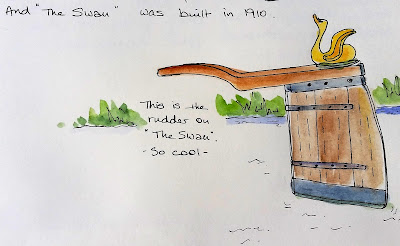 And "The Swan" was built in 1910.
This is the
rudder on
"The Swan".
-So cool-